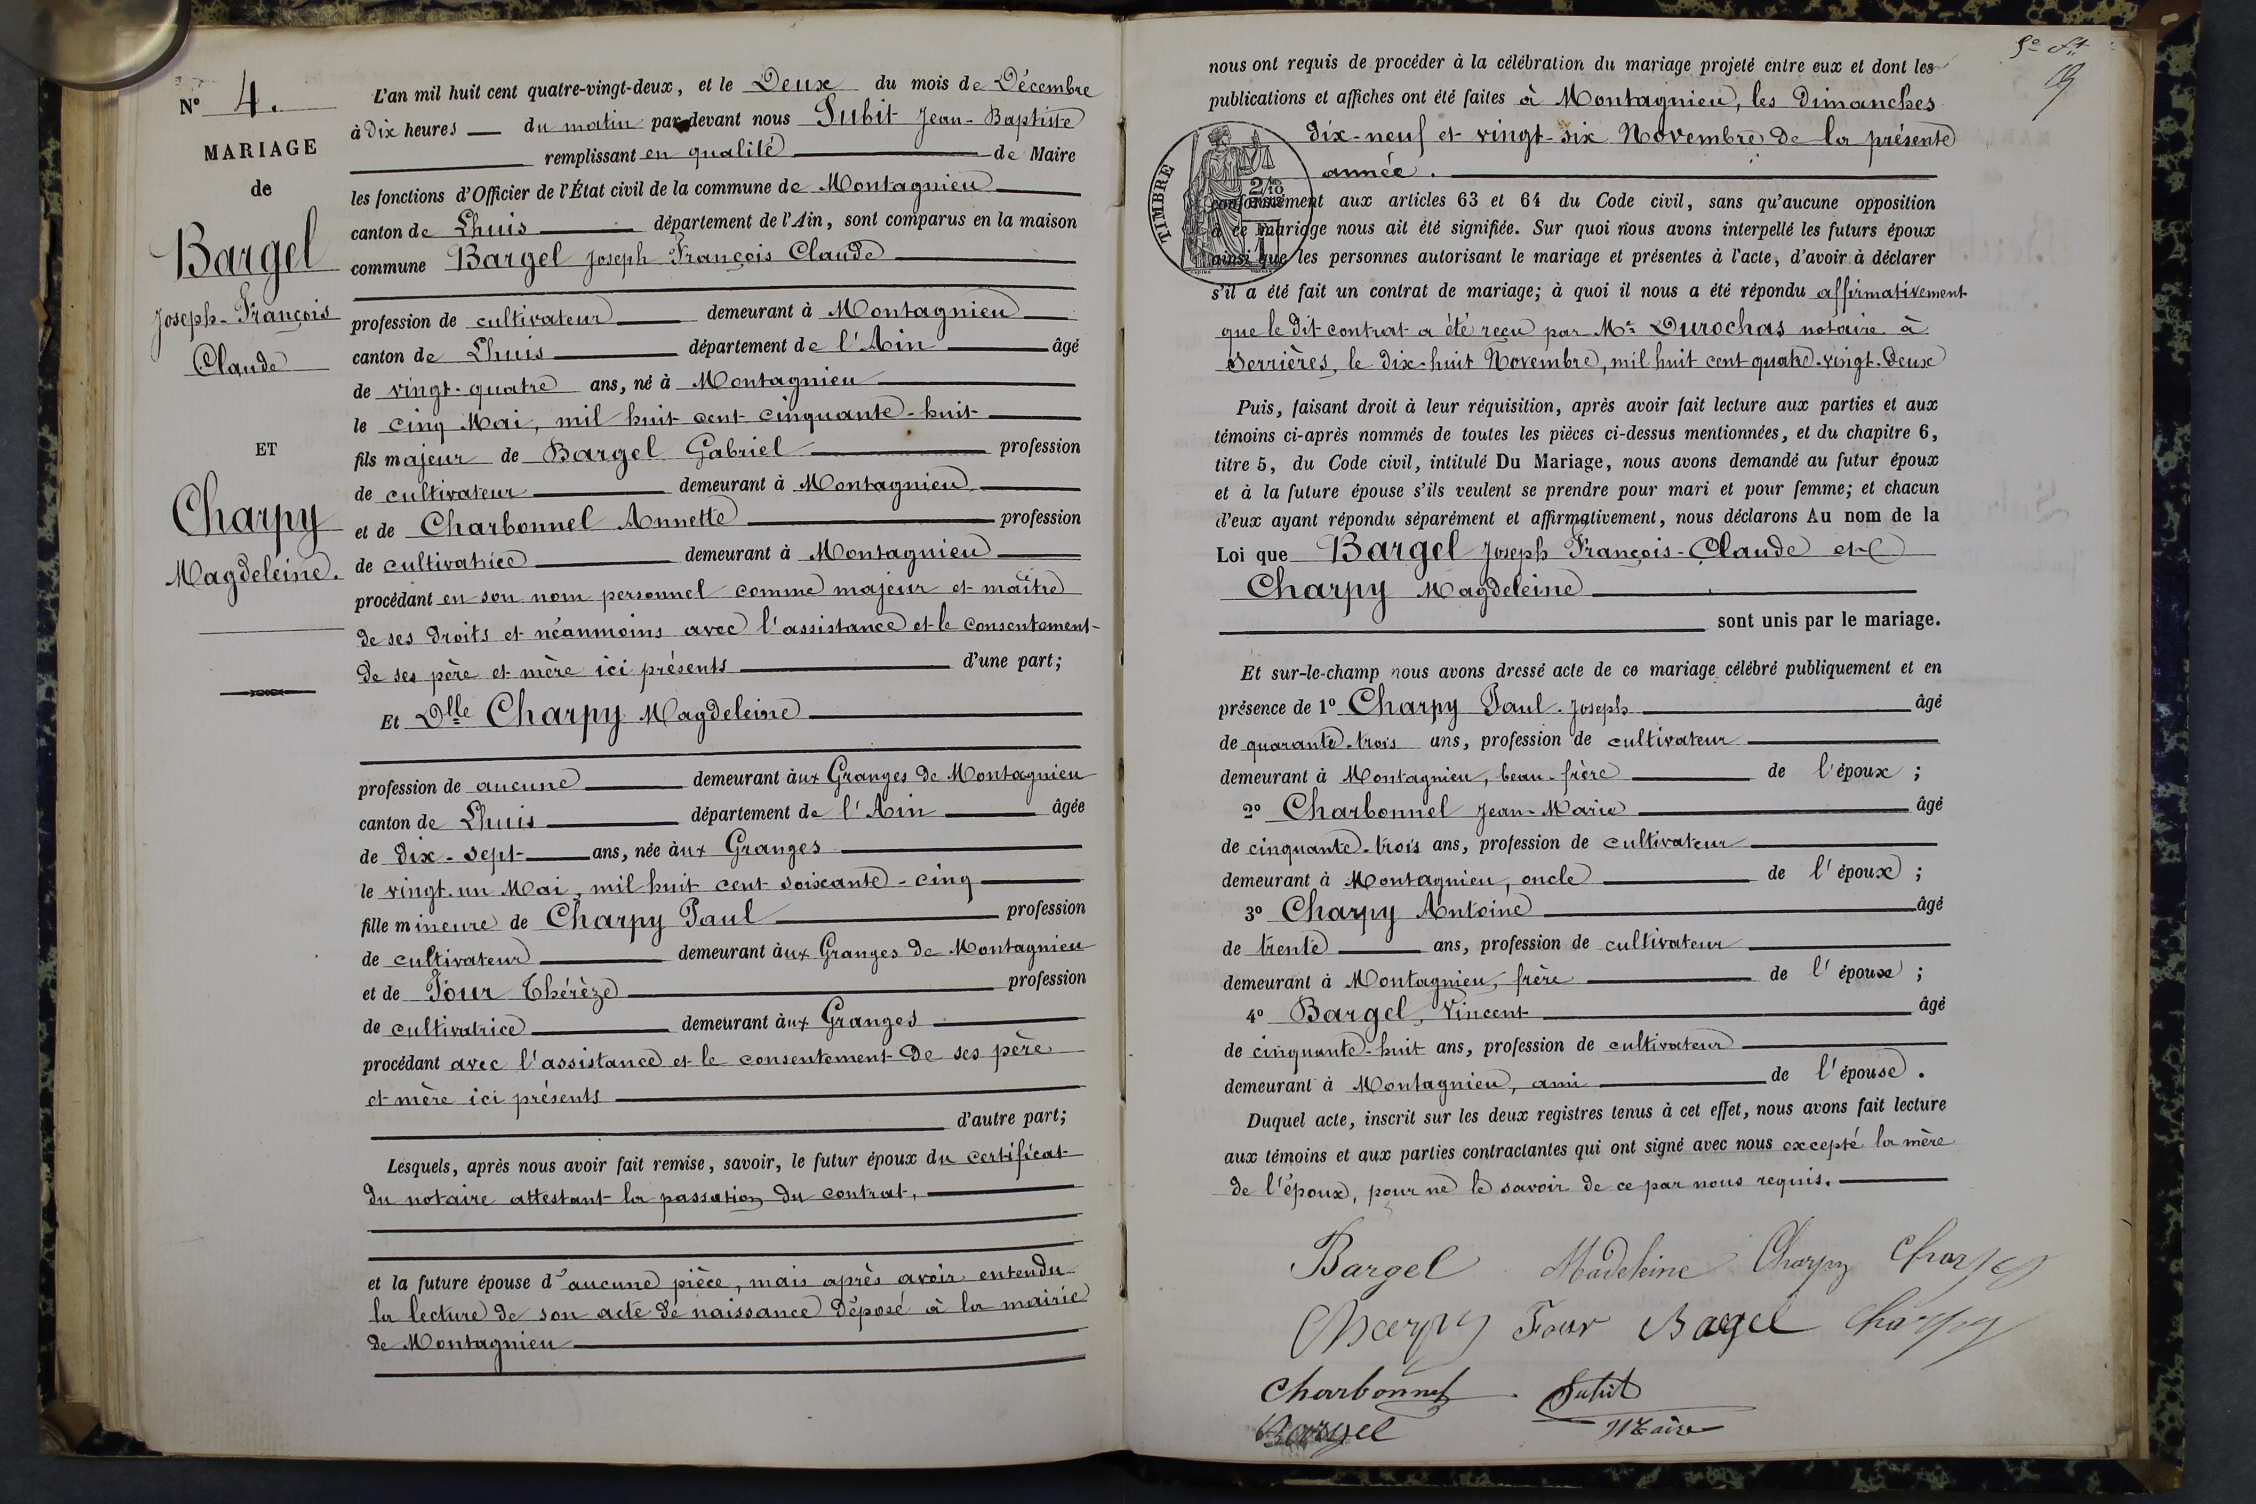 N° 4.
MARIAGE
de
Bargel
Joseph-François
Claude
ET
Charpy
Magdeleine.
L'an mil huit cent quatre-vingt-deux, et le Deux du mois de Décembre
à dix heures du matin par devant nous Subit Jean-Baptiste
remplissant en qualité de Maire
les fonctions d'Officier de l'État civil de la commune de Montagnieu
canton de Lhuis département de l'Ain, sont comparus en la maison
commune Bargel Joseph François Claude
profession de cultivateur demeurant à Montagnieu
canton de Lhuis département de l'Ain âgé
de vingt-quatre ans, né à Montagnieu
le cinq Mai, mil huit cent cinquante-huit
fils majeur de Bargel Gabriel profession
de cultivateur demeurant à Montagnieu
et de Charbonnel Annette profession
de cultivatrice demeurant à Montagnieu
procédant en son nom personnel comme majeur et maître
de ses droits et néanmoins avec l'assistance et le consentement
de ses père et mère ici présents d'une part;
Et Dlle Charpy Magdeleine
profession de aucune demeurant àux Granges de Montagnieu
canton de Lhuis département de l'Ain âgée
de dix-sept ans, née àux Granges
le vingt-un Mai, mil huit cent soixante-cinq
fille mineure de Charpy Paul profession
de cultivateur demeurant àux Granges de Montagnieu
et de Four Thérèze profession
de cultivatrice demeurant àux Granges
procédant avec l'assistance et le consentement de ses père
et mère ici présents
d'autre part;
Lesquels, après nous avoir fait remise, savoir, le futur époux du certificat
du notaire attestant la passation du contrat,
et la future épouse d'aucune pièce, mais après avoir entendu
la lecture de son acte de naissance déposé à la mairie
de Montagnieu
nous ont requis de procéder à la célébration du mariage projeté entre eux et dont les
publications et affiches ont été faites à Montagnieu, les dimanches
dix-neuf et vingt-six Novembre de la présente
année.
TIMBRE
conformément aux articles 63 et 64 du Code civil, sans qu'aucune opposition
à ce mariage nous ait été signifiée. Sur quoi nous avons interpellé les futurs époux
ainsi que les personnes autorisant le mariage et présentes à l'acte, d'avoir à déclarer
s'il a été fait un contrat de mariage; à quoi il nous a été répondu affirmativement
que le dit contrat a été reçu par Me Durochas notaire à
Serrières, le dix-huit Novembre, mil huit cent quatre-vingt-deux
Puis, faisant droit à leur réquisition, après avoir fait lecture aux parties et aux
témoins ci-après nommés de toutes les pièces ci-dessus mentionnées, et du chapitre 6,
titre 5, du Code civil, intitulé Du Mariage, nous avons demandé au futur époux
et à la future épouse s'ils veulent se prendre pour mari et pour femme; et chacun
d'eux ayant répondu séparément et affirmativement, nous déclarons Au nom de la
Loi que Bargel Joseph François-Claude et
Charpy Magdeleine
sont unis par le mariage.
Et sur-le-champ nous avons dressé acte de ce mariage célébré publiquement et en
présence de 1° Charpy Paul-Joseph âgé
de quarante-trois ans, profession de cultivateur
demeurant à Montagnieu, beau-frère de l'époux ;
2° Charbonnel Jean-Marie âgé
de cinquante-trois ans, profession de cultivateur
demeurant à Montagnieu, oncle de l'époux ;
3° Charpy Antoine âgé
de trente ans, profession de cultivateur
demeurant à Montagnieu, frère de l'épouse ;
4° Bargel Vincent âgé
de cinquante-huit ans, profession de cultivateur
demeurant à Montagnieu, ami de l'épouse.
Duquel acte, inscrit sur les deux registres tenus à cet effet, nous avons fait lecture
aux témoins et aux parties contractantes qui ont signé avec nous excepté la mère
de l'époux, pour ne le savoir de ce par nous requis.
Bargel Madeleine Charpy Charpy
Charpy Four Bargel Charpy
Charbonnel Subit
Bargel Maire